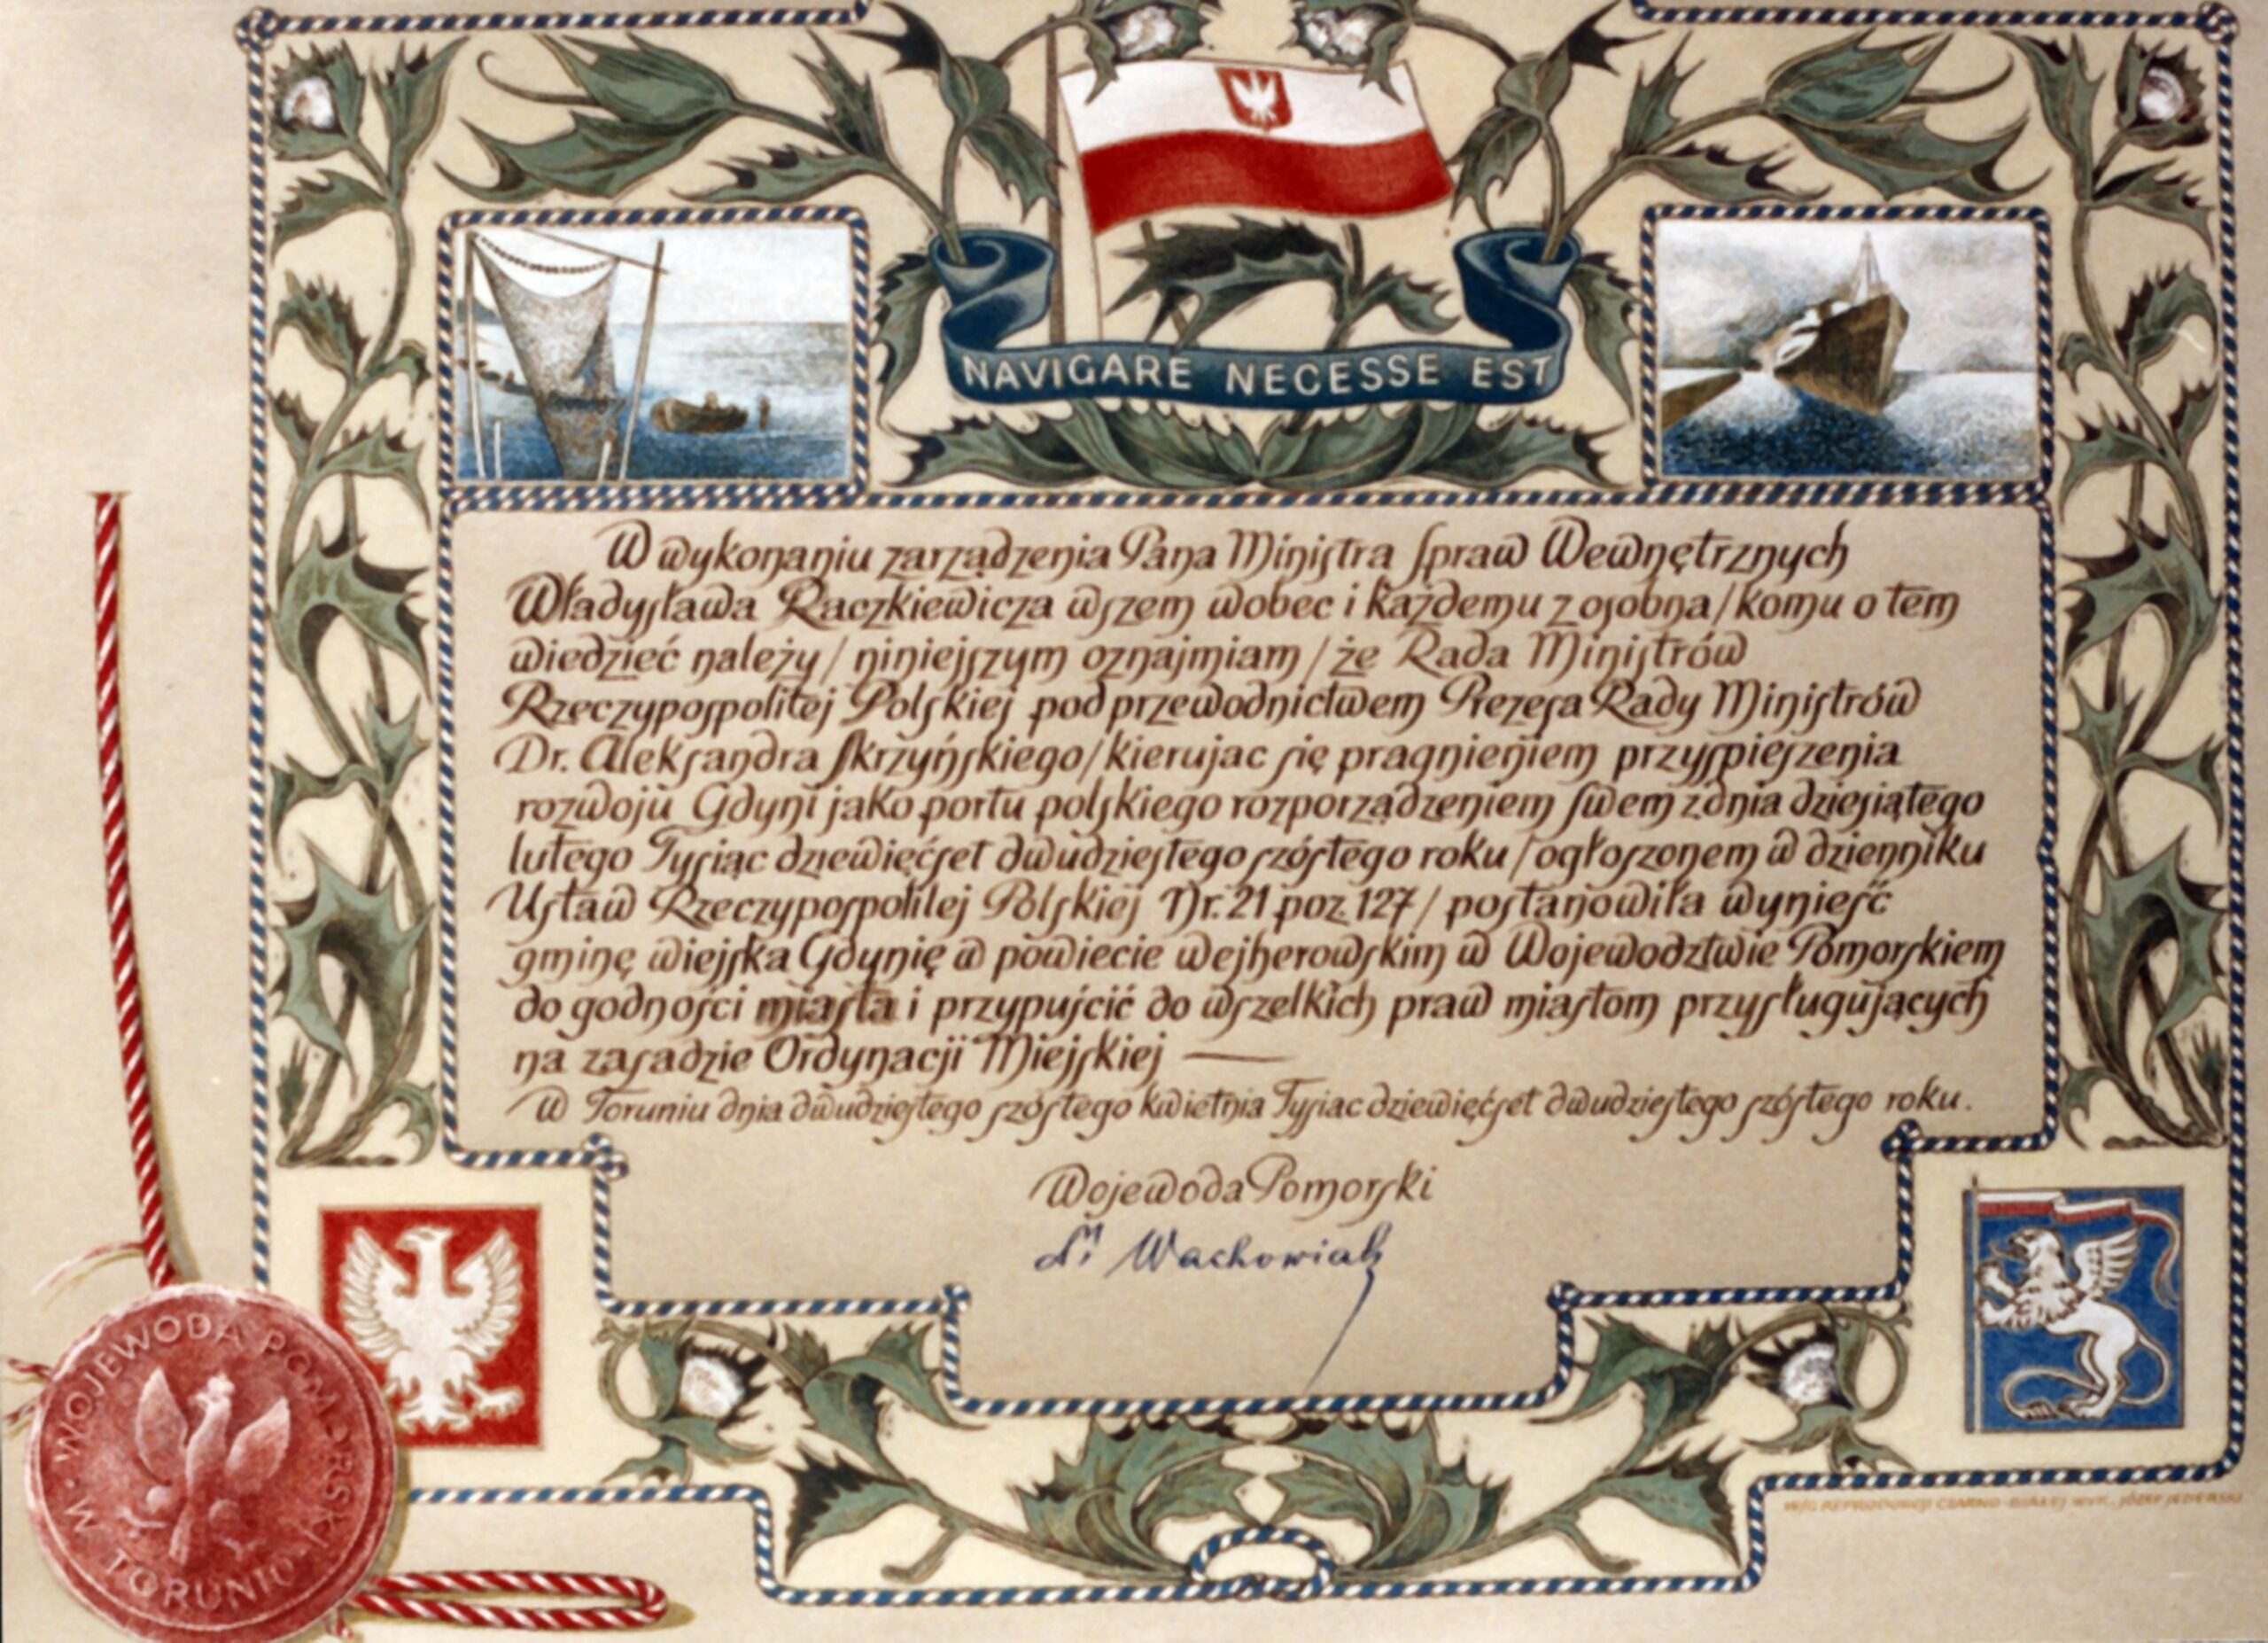 NAVIGARE NECESSE EST
W wykonaniu zarządzenia Pana Ministra Spraw Wewnętrznych
Władysława Raczkiewicza wszem wobec i każdemu z osobna / komu o tem
wiedzieć należy / niniejszym oznajmiam / że Rada Ministrów
Rzeczypospolitej Polskiej pod przewodnictwem Prezesa Rady Ministrów
Dr. Aleksandra Skrzyńskiego / kierując się pragnieniem przyspieszenia
rozwoju Gdyni jako portu polskiego rozporządzeniem swem z dnia dziesiątego
lutego Tysiąc dziewięćset dwudziestego szóstego roku / ogłoszonem w dzienniku
Ustaw Rzeczypospolitej Polskiej Nr. 21 poz. 127 / postanowiła wynieść
gminę wiejską Gdynię w powiecie wejherowskim w Województwie Pomorskiem
do godności miasta i przypuścić do wszelkich praw miastom przysługujących
na zasadzie Ordynacji Miejskiej —
W Toruniu dnia dwudziestego szóstego kwietnia Tysiąc dziewięćset dwudziestego szóstego roku.
Wojewoda Pomorski
Wachowiak
WOJEWODA POMORSKI
W TORUNIU
W/G REPRODUKCJI CZARNO-BIAŁEJ WYK. JÓZEF